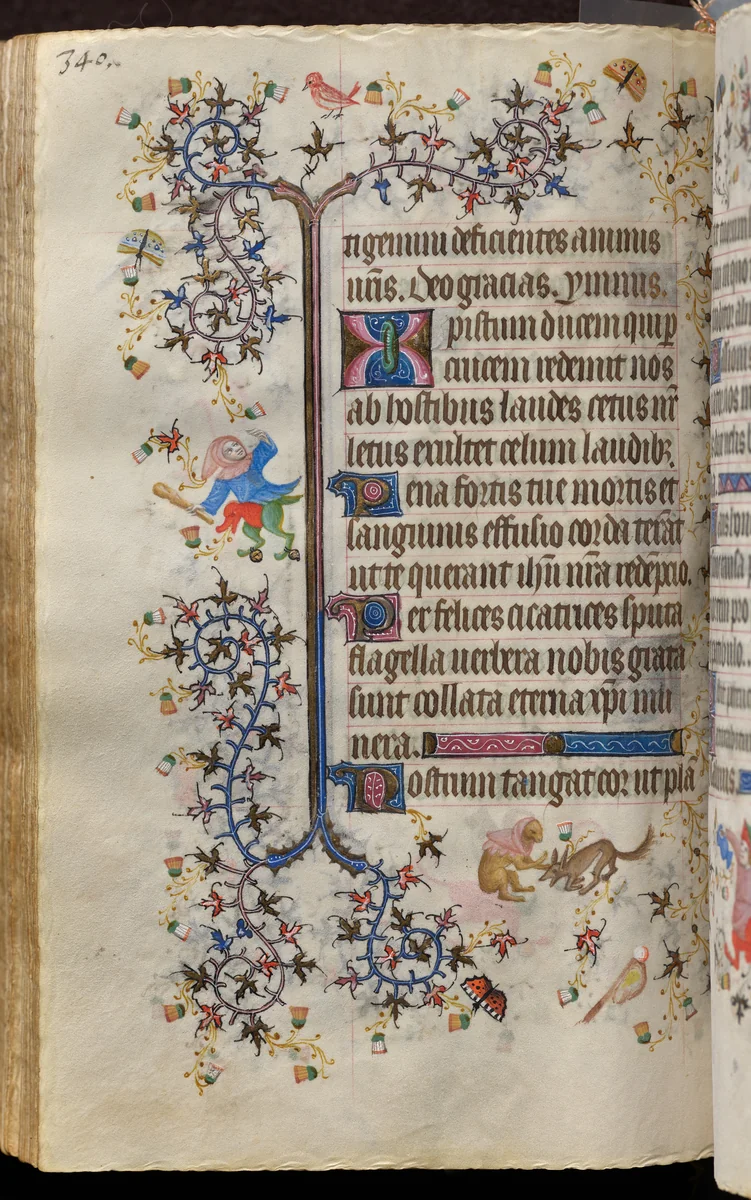 340.
tigemini deficientes animis
uris. Deo gracias. ymnus.
Xpistum ducem qui p
crucem redemit nos
ab hostibus laudes cetus nr
letus exultet celum laudib;
Pena fortis tue mortis et
sanguinis effusio corda terat
ut te querant ihu nra redepcio.
Per felices cicatrices sputa
flagella uerbera nobis grata
sunt collata eterna xpi mu
nera.
Nostrum tangat cor ut pla